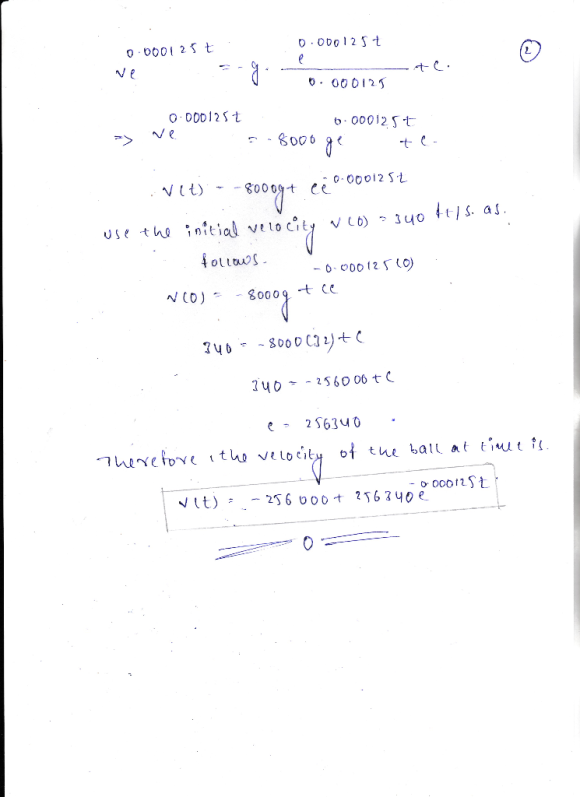 ②
v e^{0.000125t} = - g. \frac{e^{0.000125t}}{0.000125} + c.
=> v e^{0.000125t} = - 8000 g e^{0.000125t} + c.
v(t) = -8000g + c e^{-0.000125t}
use the initial velocity v(0) = 340 ft/s. as.
follows.
v(0) = -8000g + c e^{-0.000125(0)}
340 = -8000(32) + c
340 = -256000 + c
c = 256340 .
Therefore, the velocity of the ball at time t is.
v(t) = -256000 + 256340 e^{-0.000125t}
0